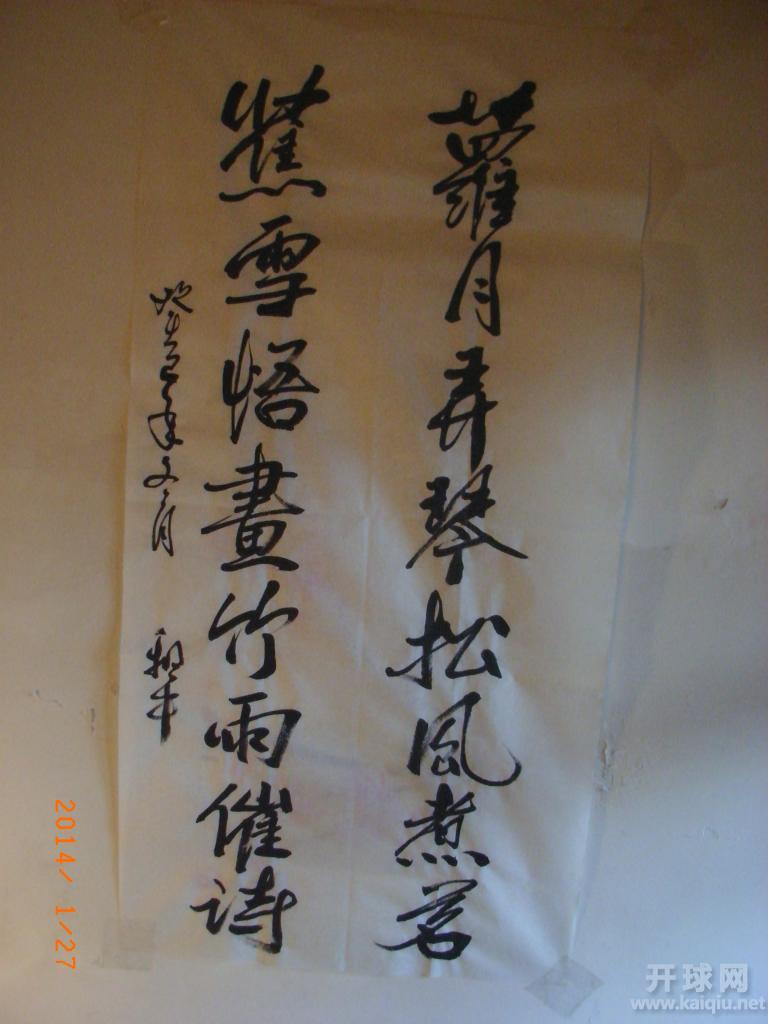 蘿月弄琴松風煮茗
蕉雪悟畫竹雨催诗
癸巳年
2014/ 1/27
开球网
www.kaiqiu.net